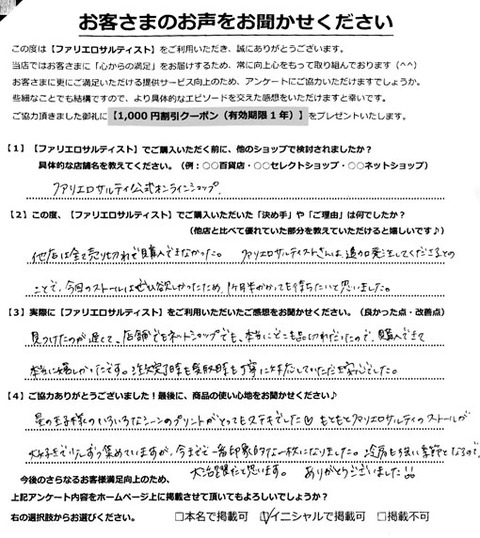 お客さまのお声をお聞かせください
この度は【ファリエロサルティスト】をご利用いただき、誠にありがとうございます。
当店ではお客さまに「心からの満足」をお届けするため、常に向上心をもって取り組んでおります（^^）
お客さまに更にご満足いただける提供サービス向上のため、アンケートにご協力いただけますでしょうか。
些細なことでも結構ですので、より具体的なエピソードを交えた感想をいただけますと幸いです。
ご協力頂きました御礼に【1,000円割引クーポン（有効期限1年）】をプレゼントいたします。
【1】【ファリエロサルティスト】でご購入いただく前に、他のショップで検討されましたか？
具体的な店舗名を教えてください。（例：○○百貨店・○○セレクトショップ・○○ネットショップ）
ファリエロサルティ公式オンラインショップ。
【2】この度、【ファリエロサルティスト】でご購入いただいた「決め手」や「ご理由」は何でしたか？
（他店と比べて優れていた部分を教えていただけると嬉しいです♪）
他店は全て売り切れで購入できなかった。ファリエロサルティストさんは、追加発注してくださるとの
ことで、今回のストールはぜひ欲しかったため、1ヶ月半かかっても待ちたいと思いました。
【3】実際に【ファリエロサルティスト】をご利用いただいたご感想をお聞かせください。（良かった点・改善点）
見つけたのが遅くて、店舗でもネットショップでも、本当にどこも品切れだったので、購入できて
本当に嬉しかったです。注文完了時も受取時も丁寧に対応していただき安心でした。
【4】ご協力ありがとうございました！最後に、商品の使い心地をお聞かせください♪
星の王子様のいろいろなシーンのプリントがとってもステキでした♡ もともとファリエロサルティのストールが
大好きで少しずつ集めていますが、今までで一番印象的な一枚になりました。冷房も強い季節となるので、
大活躍だと思います。 ありがとうございました!!
今後のさらなるお客様満足向上のため、
上記アンケート内容をホームページ上に掲載させて頂いてもよろしいでしょうか？
右の選択肢からお選びください。 □本名で掲載可 ☑イニシャルで掲載可 □掲載不可